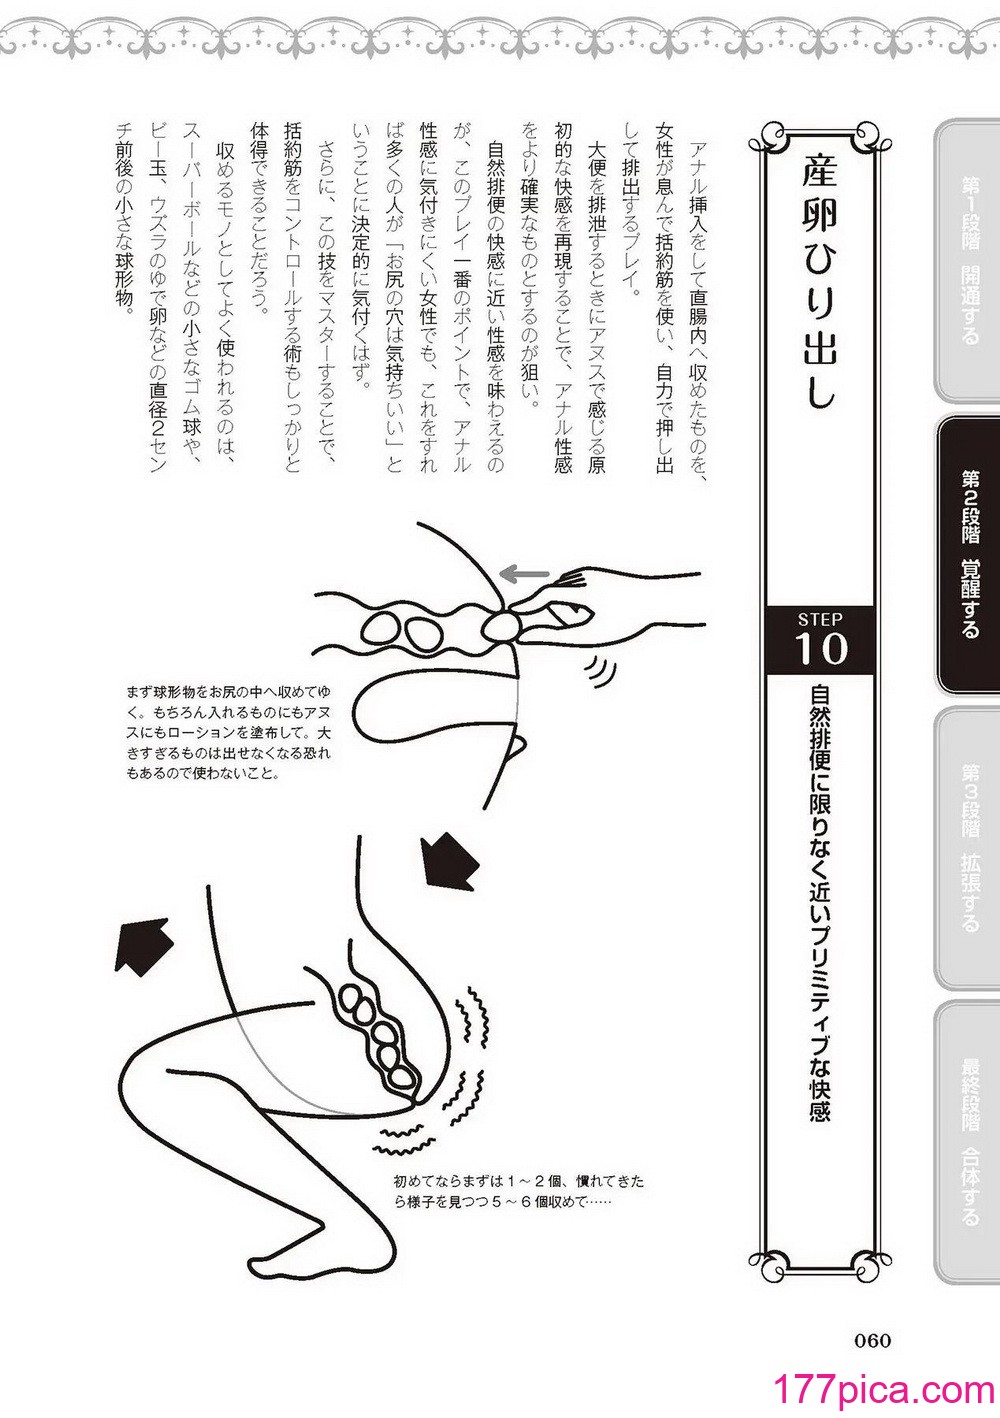 産卵ひり出し
STEP
10
自然排便に限りなく近いプリミティブな快感
アナル挿入をして直腸内へ収めたものを、
女性が息んで括約筋を使い、自力で押し出
して排出するプレイ。
大便を排泄するときにアヌスで感じる原
初的な快感を再現することで、アナル性感
をより確実なものとするのが狙い。
自然排便の快感に近い性感を味わえるの
が、このプレイ一番のポイントで、アナル
性感に気付きにくい女性でも、これをすれ
ば多くの人が「お尻の穴は気持ちいい」と
いうことに決定的に気付くはず。
さらに、この技をマスターすることで、
括約筋をコントロールする術もしっかりと
体得できることだろう。
収めるモノとしてよく使われるのは、
スーパーボールなどの小さなゴム球や、
ビー玉、ウズラのゆで卵などの直径2セン
チ前後の小さな球形物。
まず球形物をお尻の中へ収めてゆ
く。もちろん入れるものにもアヌ
スにもローションを塗布して。大
きすぎるものは出せなくなる恐れ
もあるので使わないこと。
初めてならまずは1〜2個、慣れてきた
ら様子を見つつ5〜6個収めて……
第1段階 開通する
第2段階 覚醒する
第3段階 拡張する
最終段階 合体する
060
177pica.com